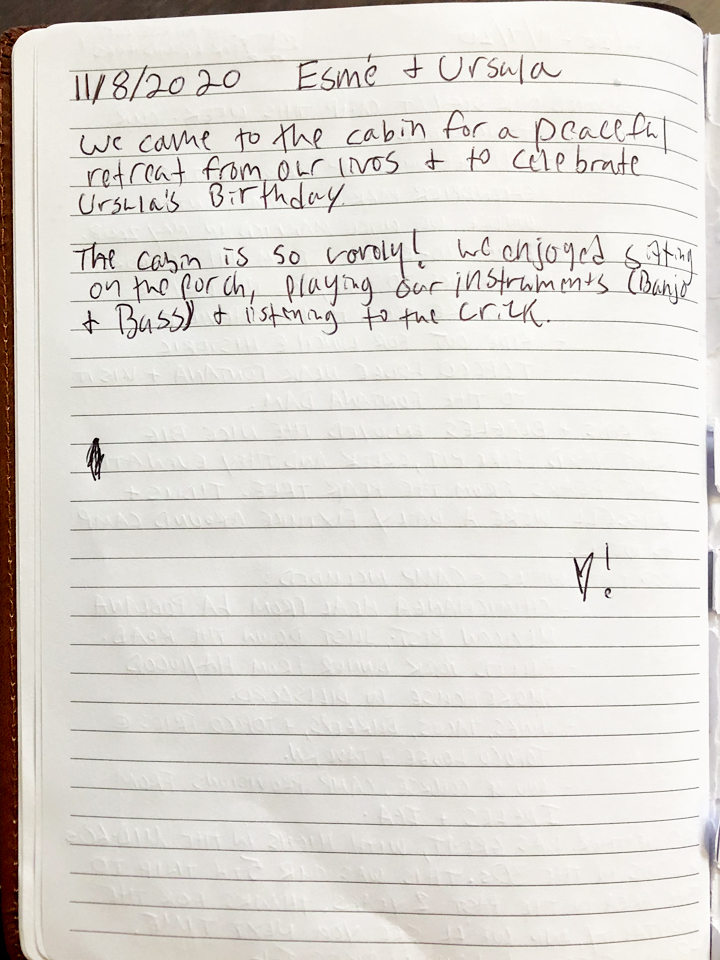 11/8/2020 Esmé + Ursula
We came to the cabin for a peaceful
retreat from our lives + to celebrate
Ursula's Birthday.
The cabin is so lovely! We enjoyed sitting
on the porch, playing our instruments (Banjo
+ Bass) + listening to the crick.
♥!